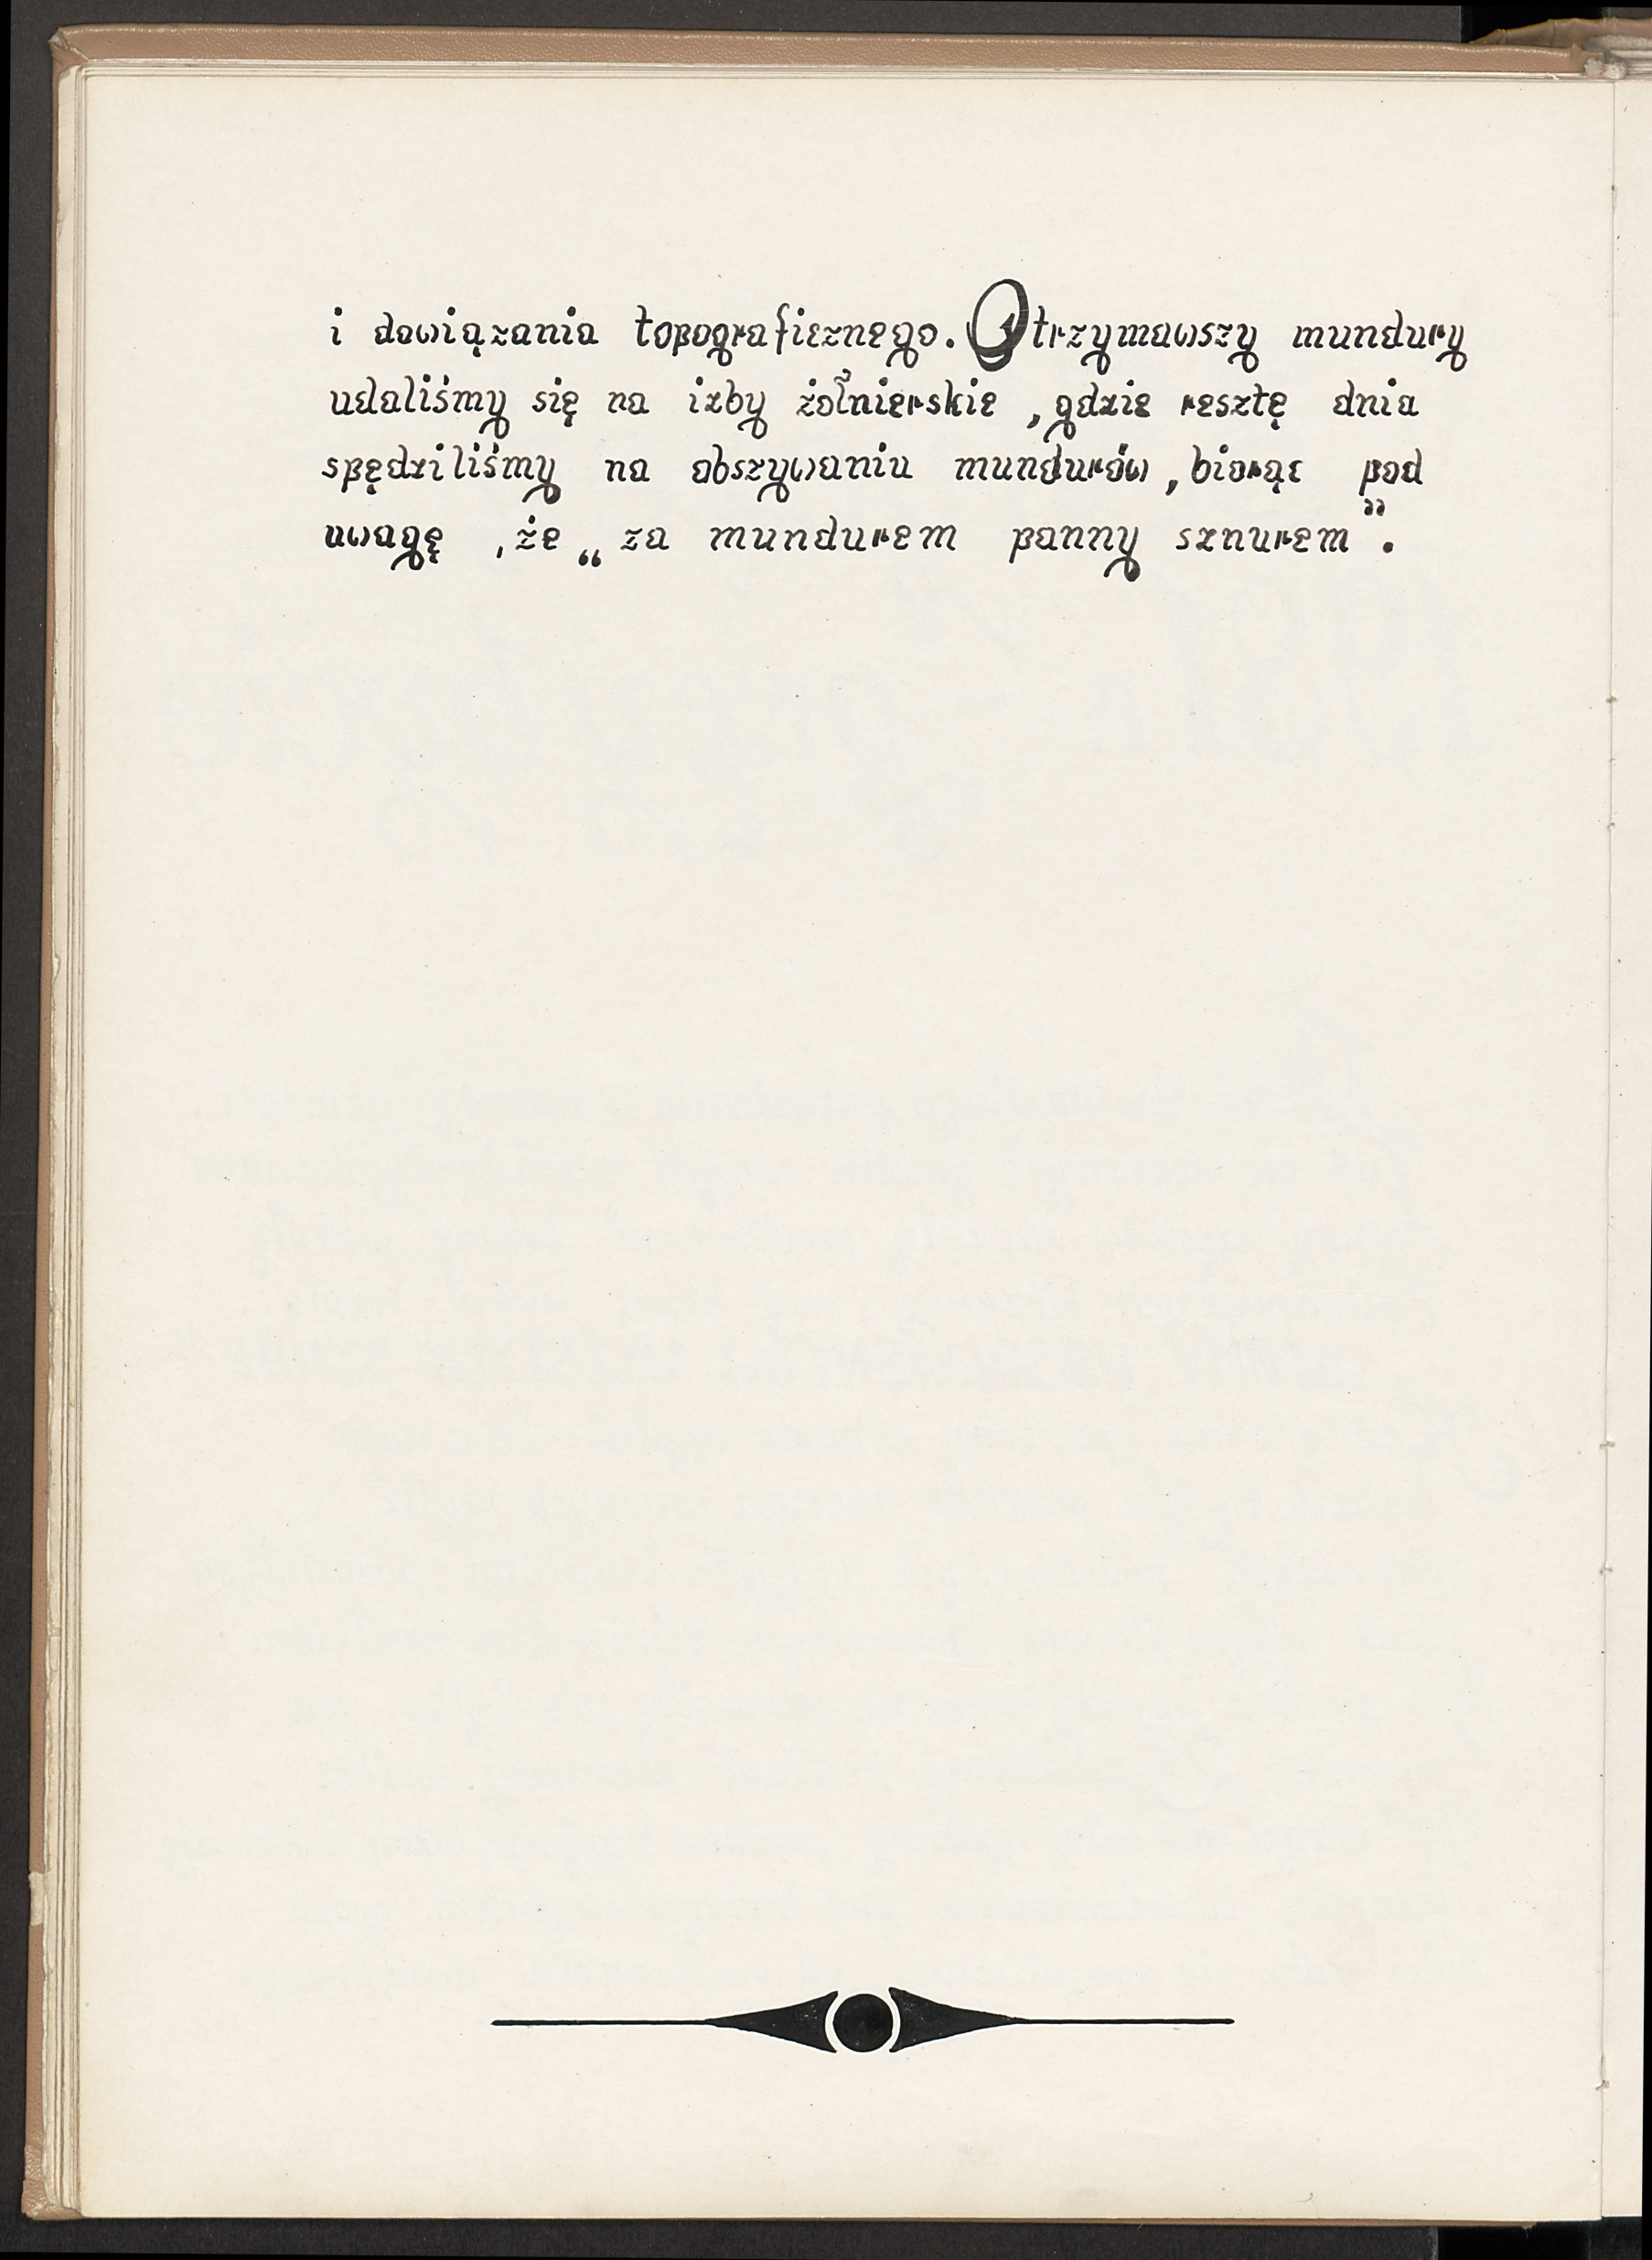 i dowiązania topograficznego. Otrzymawszy mundury
udaliśmy się na izby żołnierskie, gdzie resztę dnia
spędziliśmy na obszywaniu mundurów, biorąc pod
uwagę, że „za mundurem panny sznurem”.